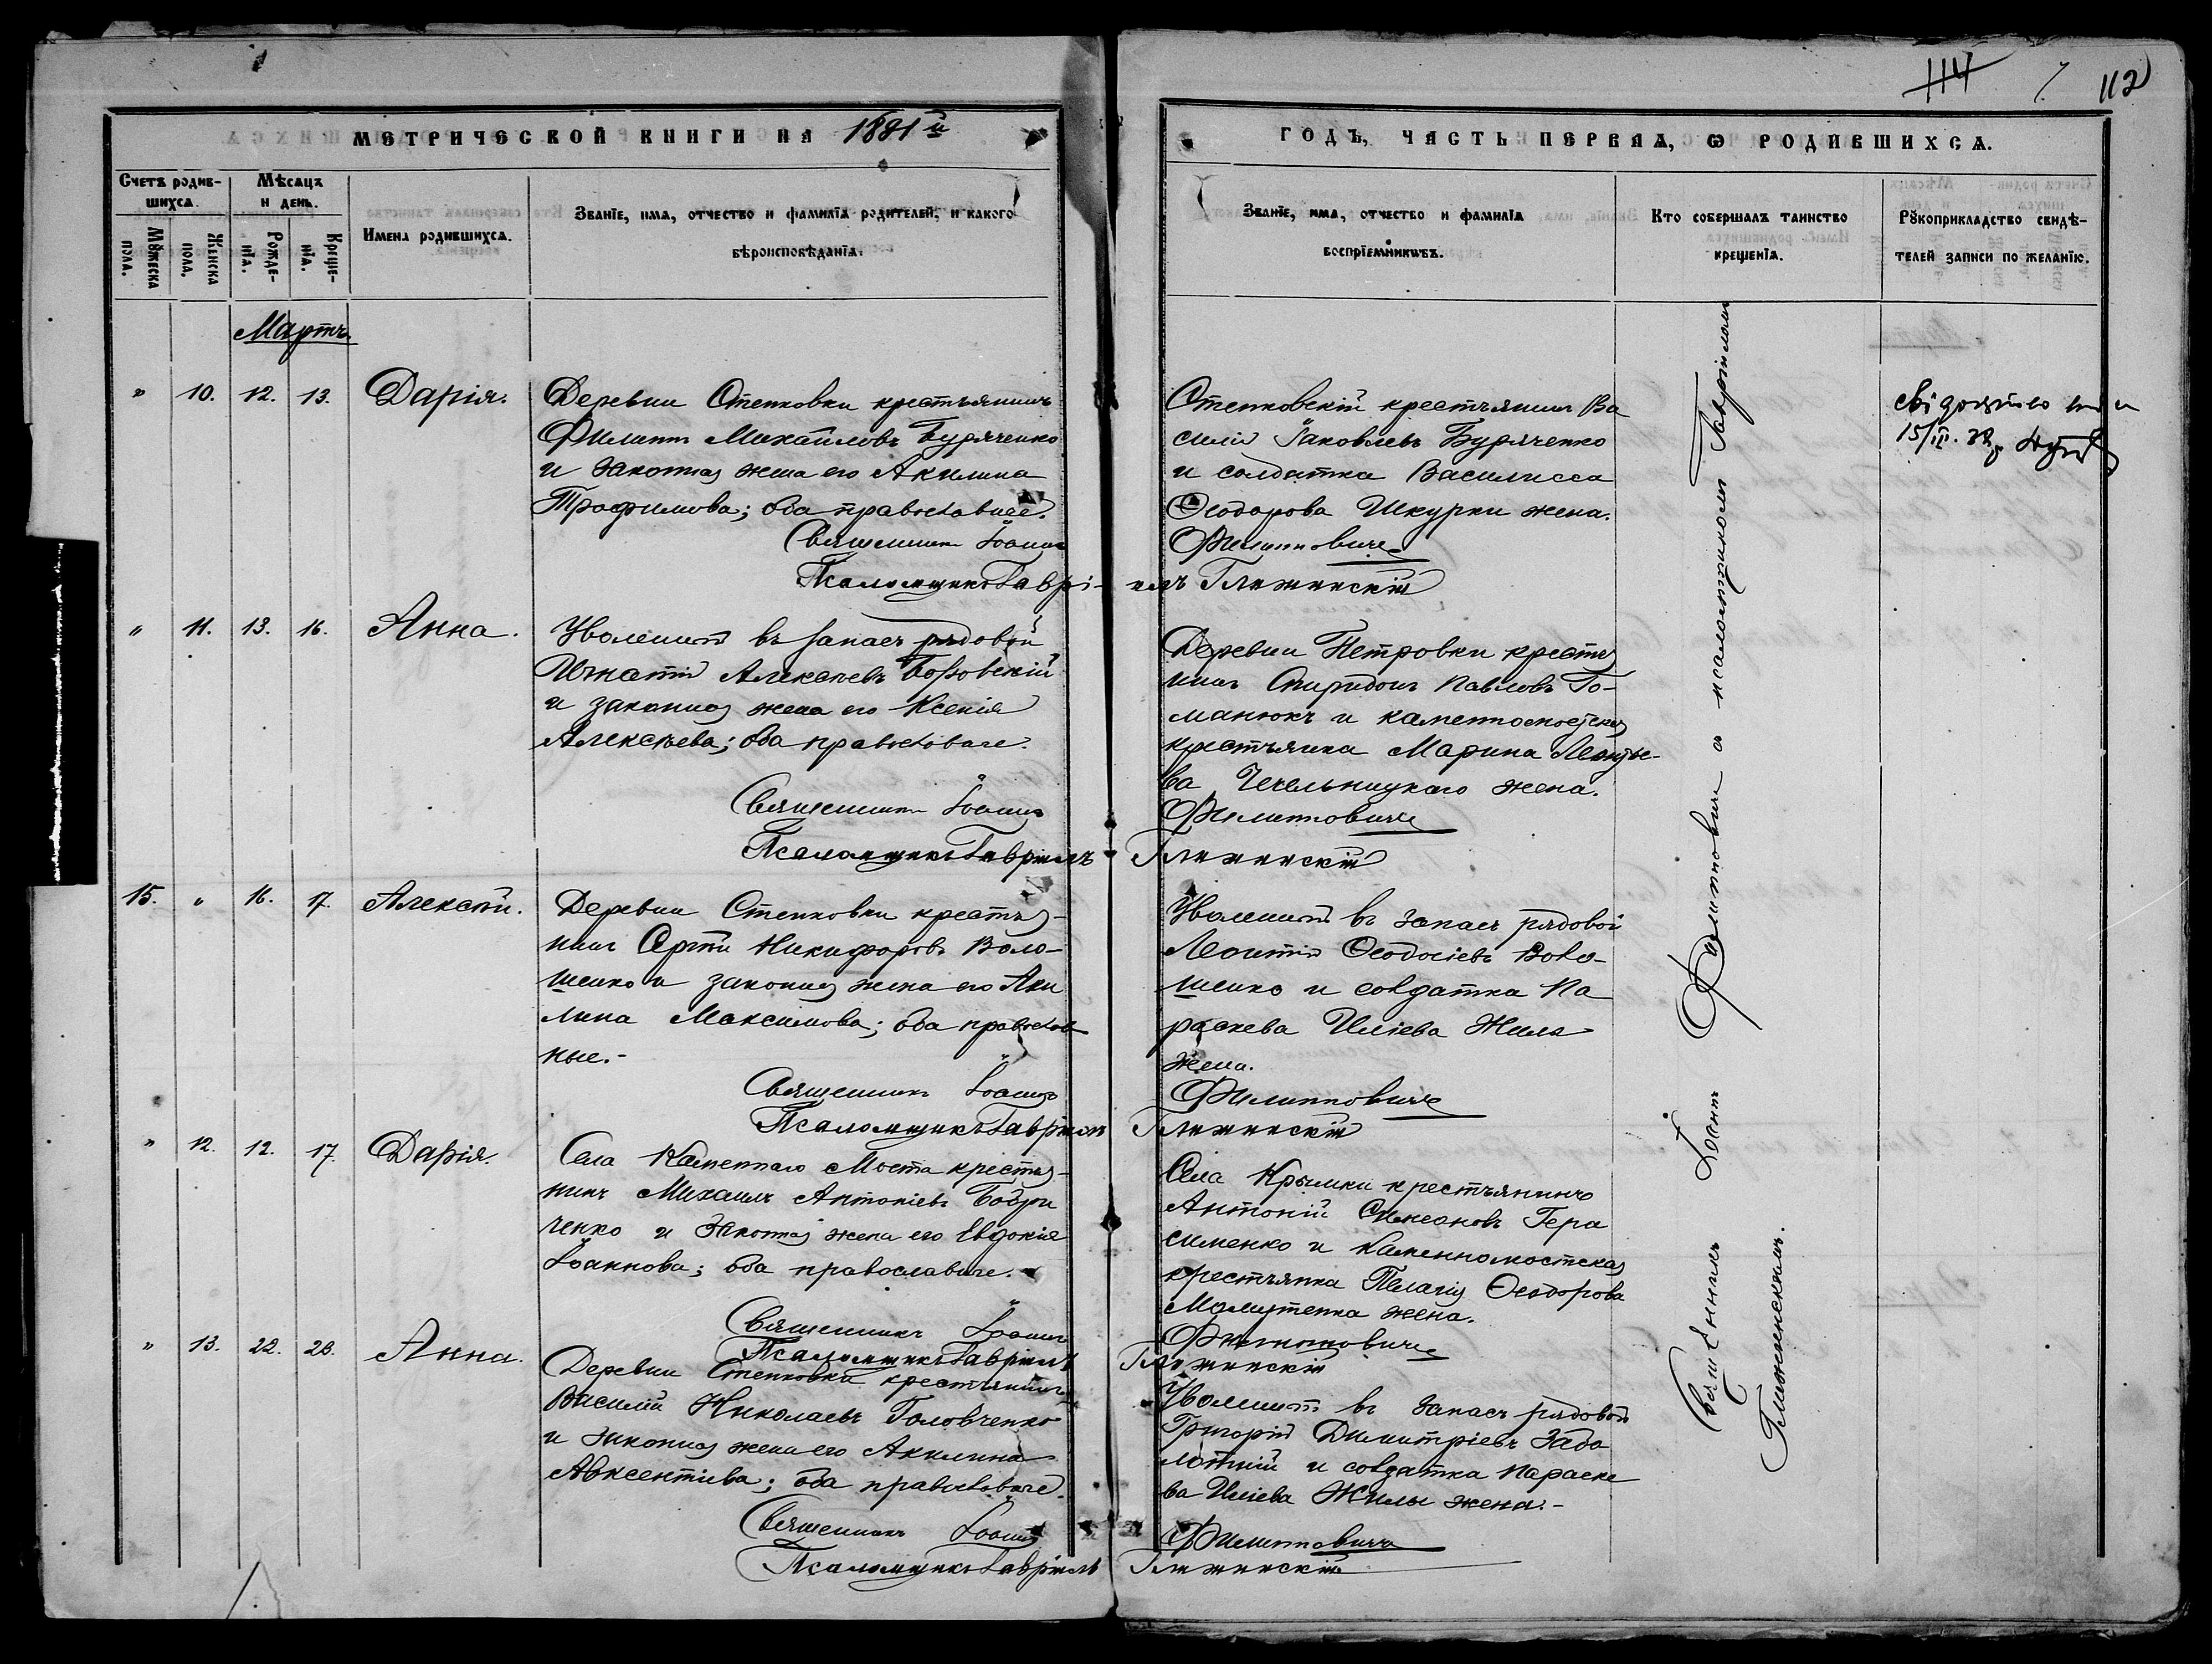 114 112
МЕТРИЧЕСКОЙ КНИГИ НА 1881й
ГОДЪ, ЧАСТЬ ПЕРВАЯ, Ѡ РОДИВШИХСѦ.
Счетъ родив-
шихсѧ.
Мѣсѧцъ
и день.
Мꙋжеска
пола.
Женска
пола.
Рожде-
нїѧ.
Креще-
нїѧ.
Имена родившихсѧ.
Званїе, имѧ, отчество и фамилїѧ родителей, и какого
вѣроисповѣданїѧ.
Званїе, имѧ, отчество и фамилїѧ
воспрїемниковъ.
Кто совершалъ таинство
крещенїѧ.
Рꙋкоприкладство свидѣ-
телей записи по желанїю.
Мартъ.
" 10. 12. 13. Дарія.
Деревни Степковки крестьянинъ
Филиппъ Михайловъ Бурдченко
и законная жена его Акилина
Трофимова; оба православные.
Священникъ Іоаннъ
Псаломщикъ Гаврі-
Степковскій крестьянинъ Ва
силій Іаковлевъ Бурдченко
и солдатка Василисса
Ѳеодорова Шкурки жена.
Филипповичъ
илъ Глижинскій
15/III. 38
" 11. 13. 16. Анна.
Уволенный въ запасъ рядовой
Игнатій Алексѣевъ Бозовскій
и законная жена его Ксенія
Алексѣева; оба православные.
Священникъ Іоаннъ
Псаломщикъ Гавріилъ
Деревни Петровки крестья
нинъ Спиридонъ Павловъ Го-
манюкъ и каменномостская
крестьянка Марина Леонтье-
ва Чечельницкаго жена.
Филипповичъ
Глижинскій
15. " 16. 17. Алексѣй.
Деревни Степковки крестья-
нинъ Сергій Никифоровъ Воло-
шенко и законная жена его Аки
лина Максимова; оба православ
ные.-
Священникъ Іоаннъ
Псаломщикъ Гавріилъ
Уволенный въ запасъ рядовой
Леонтій Ѳеодосіевъ Воло-
шенко и солдатка Па
раскева Иліева Жила
жена.
Филипповичъ
Глижинскій
" 12. 12. 17. Дарія.
Села Каменнаго Моста крестья-
нинъ Михаилъ Антоніевъ Бобри
ченко и законная жена его Евдокія
Іоаннова; оба православные.
Священникъ Іоаннъ
Псаломщикъ Гавріилъ
Села Крымки крестьянинъ
Антоній Симеоновъ Гера
сименко и каменномостская
крестьянка Пелагія Ѳеодорова
жена.
Филипповичъ
Глижинскій
" 13. 22. 28. Анна.
Деревни Степковки крестьянинъ
Василій Николаевъ Головченко
и законная жена его Акилина
Авксентіева; оба православные.
Священникъ Іоаннъ
Псаломщикъ Гавріилъ
Уволенный въ запасъ рядовой
Григорій Димитріевъ Забо
лотный и солдатка Параске
ва Иліева Жилы жена.-
Филипповичъ
Глижинскій
Священникъ Іоаннъ Филипповичъ съ псаломщикомъ Гавріиломъ
Глижинскимъ.